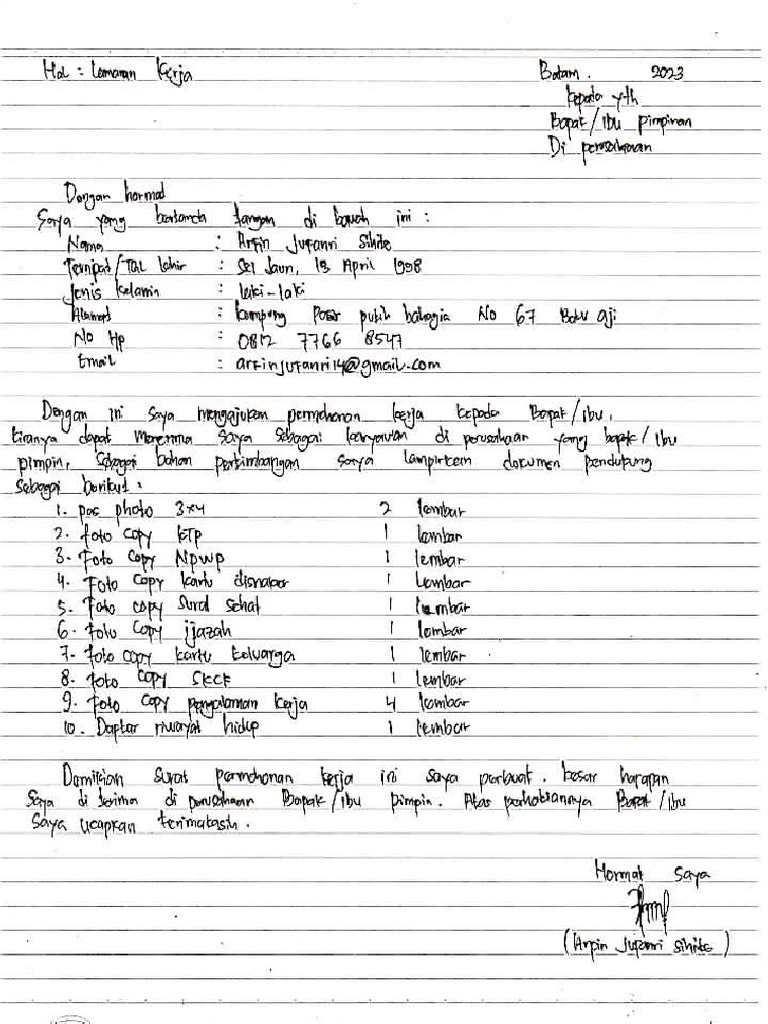 Hal : Lamaran Kerja
Batam. 2023
Kepada yth
Bapak/ibu pimpinan
Di perusahaan
Dengan hormat
Saya yang bertanda tangan di bawah ini :
Nama : Arfin Jufanri Sihite
Tempat/Tal lahir : Sei Jaun, 13 April 1998
Jenis kelamin : laki-laki
Alamat : kampung Pasir putih bahagia No 67 Batu aji
No Hp : 0812 7766 8547
Email : arfinjufanri14@gmail.com
Dengan ini saya mengajukan permohonan kerja kepada Bapak/ibu,
kiranya dapat menerima saya sebagai karyawan di perusahaan yang bapak/ibu
pimpin, sebagai bahan pertimbangan saya lampirkan dokumen pendukung
sebagai berikut :
1. pas photo 3x4 2 lembar
2. foto copy KTP 1 lembar
3. Foto copy NPWP 1 lembar
4. Foto copy kartu disnaker 1 Lembar
5. Foto copy Surat sehat 1 lembar
6. foto copy ijazah 1 lembar
7. foto copy kartu keluarga 1 lembar
8. foto copy SKCK 1 lembar
9. foto copy pengalaman kerja 4 lembar
10. Daptar riwayat hidup 1 lembar
Demikian surat permohonan kerja ini saya perbuat. besar harapan
saya di terima di perusahaan Bapak/ibu pimpin. Atas perhatiannya Bapak/ibu
saya ucapkan terimakasih.
Hormat saya
(Arpin Jufanri Sihite)